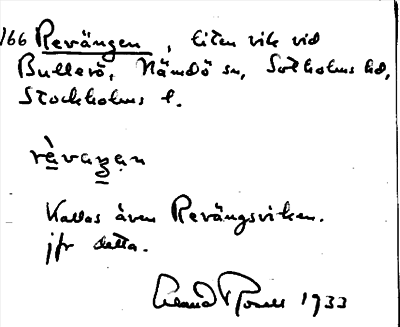 166 Revängen, liten vik vid
Bullerö, Nämdö sn, Sotholms hd,
Stockholms l.
rèvaŋən
Kallas även Revängsviken.
jfr detta.
1933